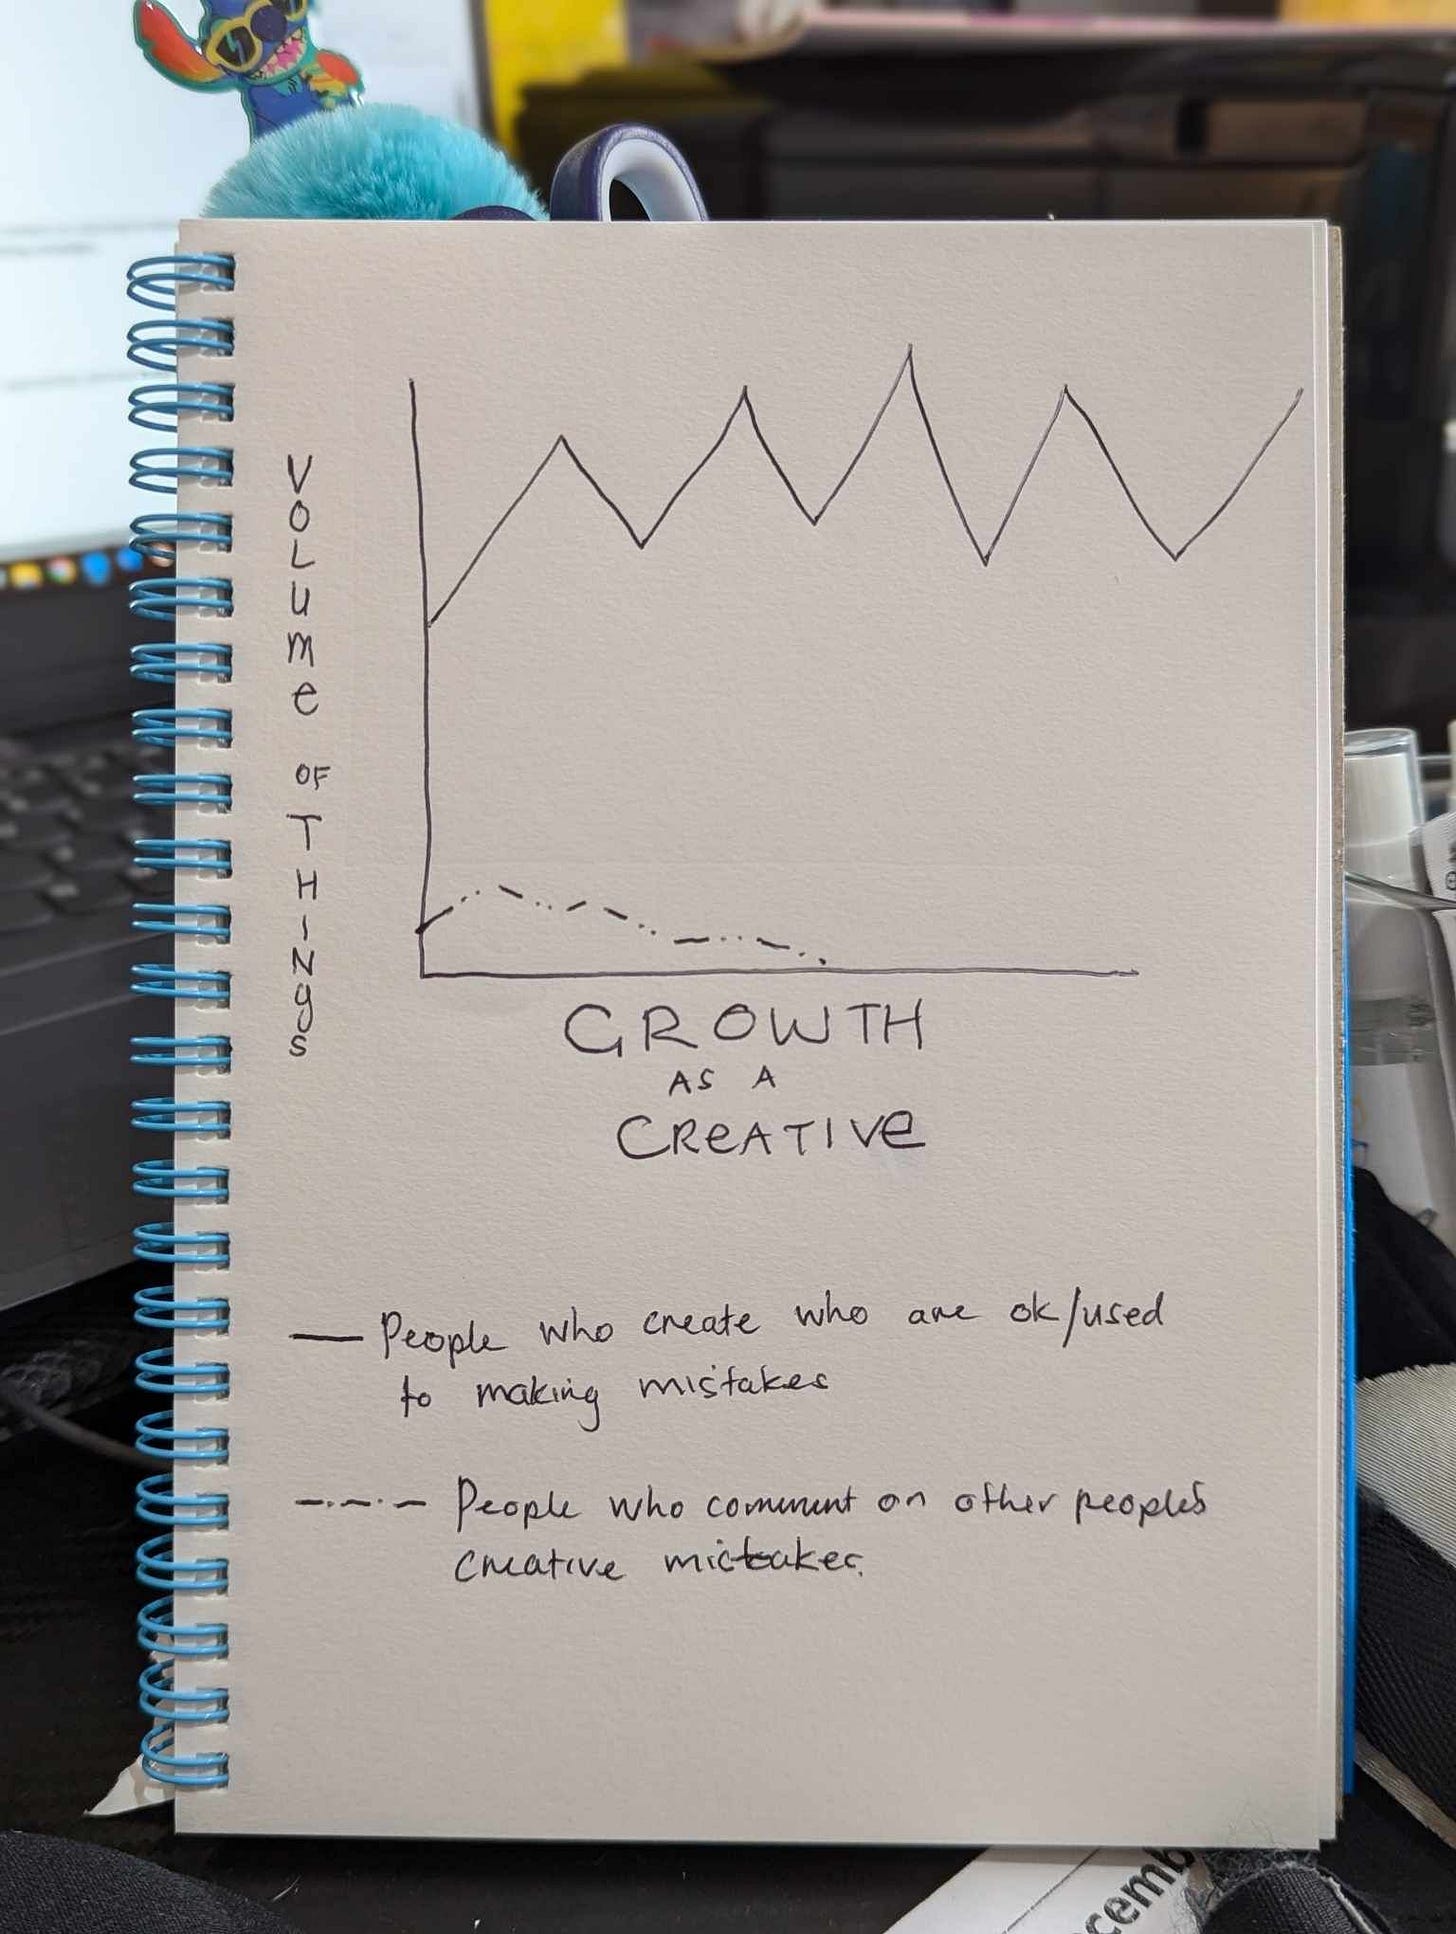 VOLUME OF THINGS
GROWTH
AS A
CREATIVE
People who create who are ok/used
to making mistakes
People who comment on other peoples
creative mistakes.
cemb